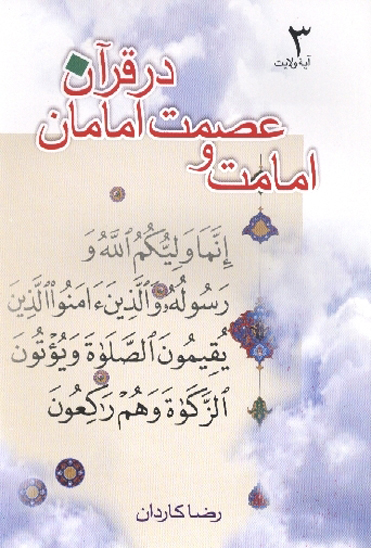 ۳
آیهٔ ولایت
امامت و عصمت امامان در قرآن
إِنَّمَا وَلِيُّكُمُ اللَّهُ وَ
رَسُولُهُ وَالَّذِينَ ءَامَنُوا الَّذِينَ
يُقِيمُونَ الصَّلَوٰةَ وَيُؤْتُونَ
الزَّكَوٰةَ وَهُمْ رَاكِعُونَ
رضا کاردان